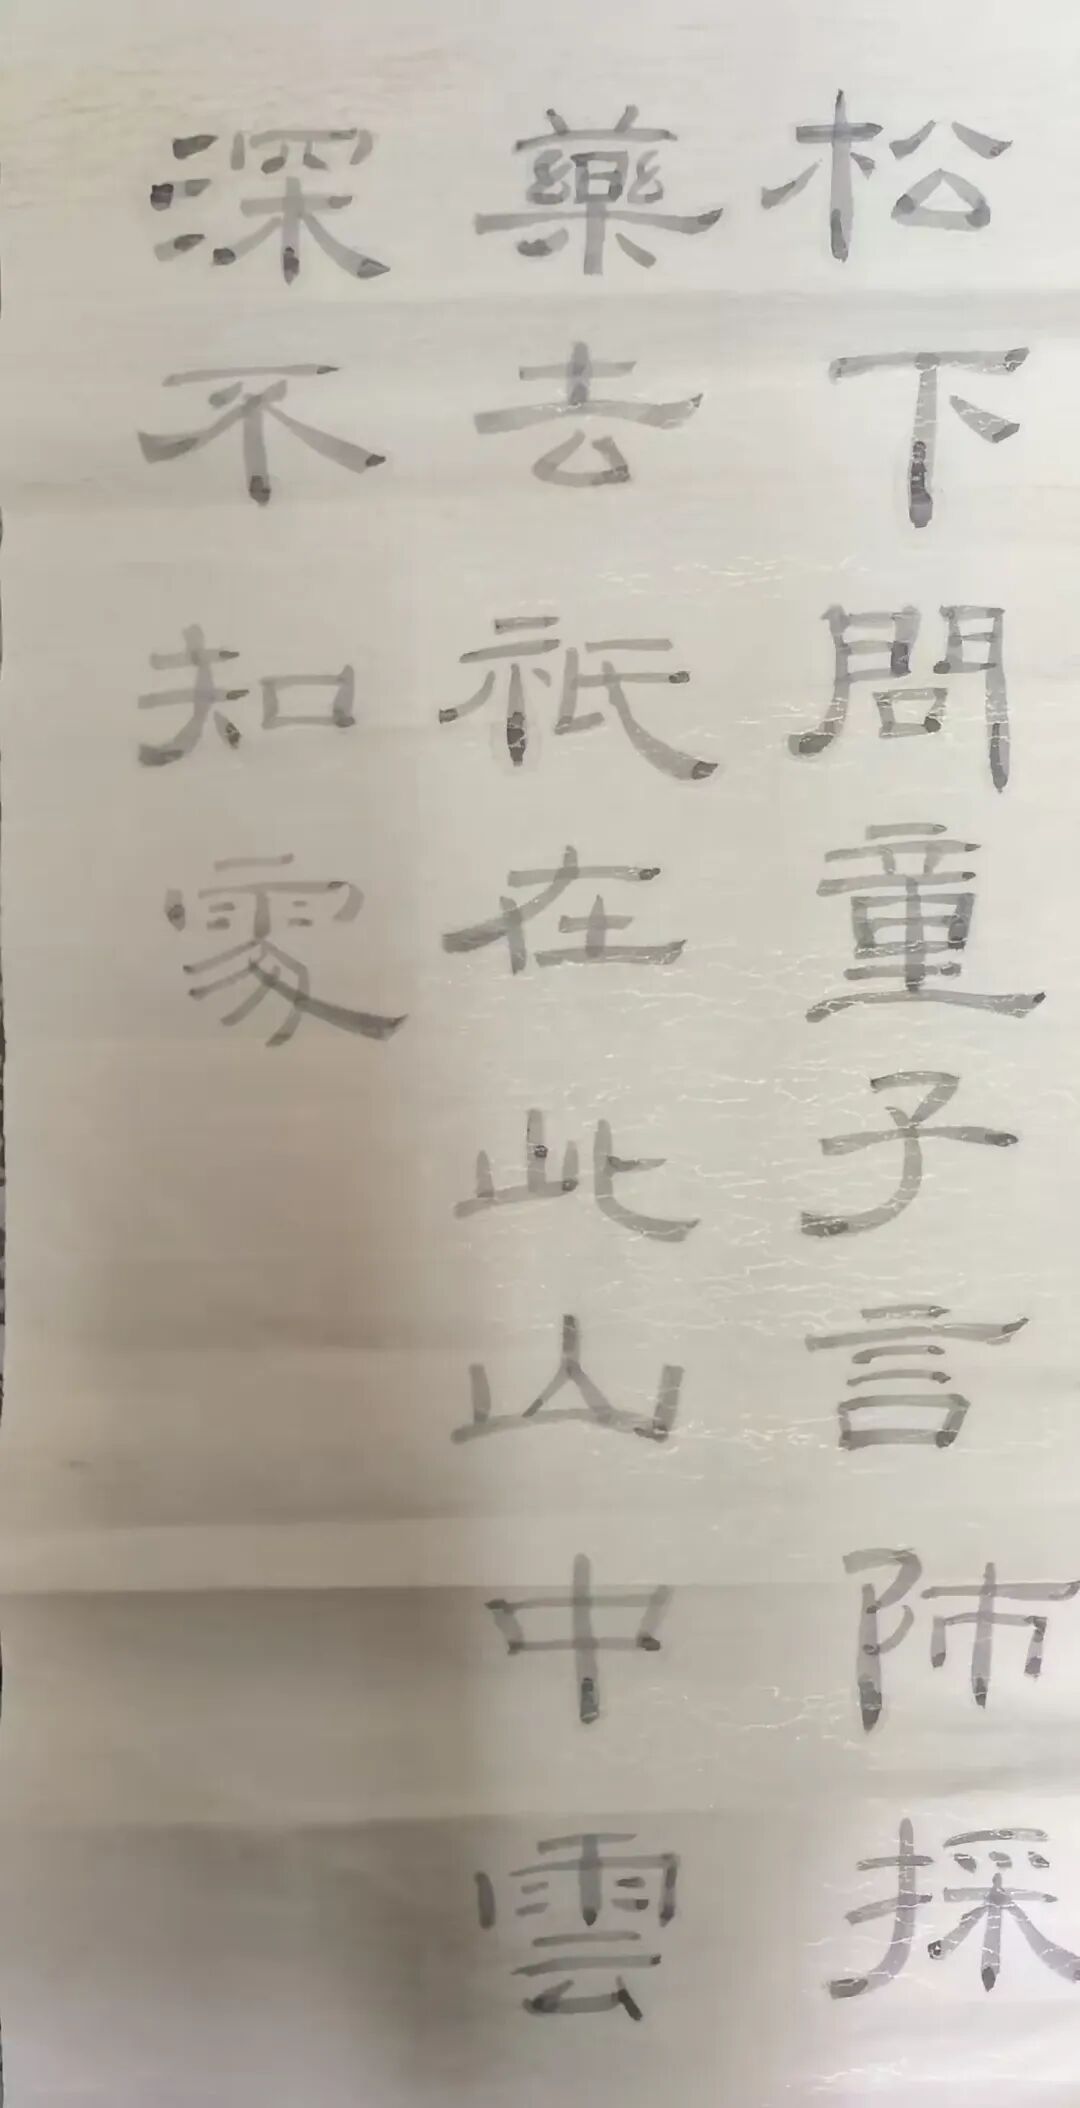 松下問童子言師採
藥去祇在此山中雲
深不知處